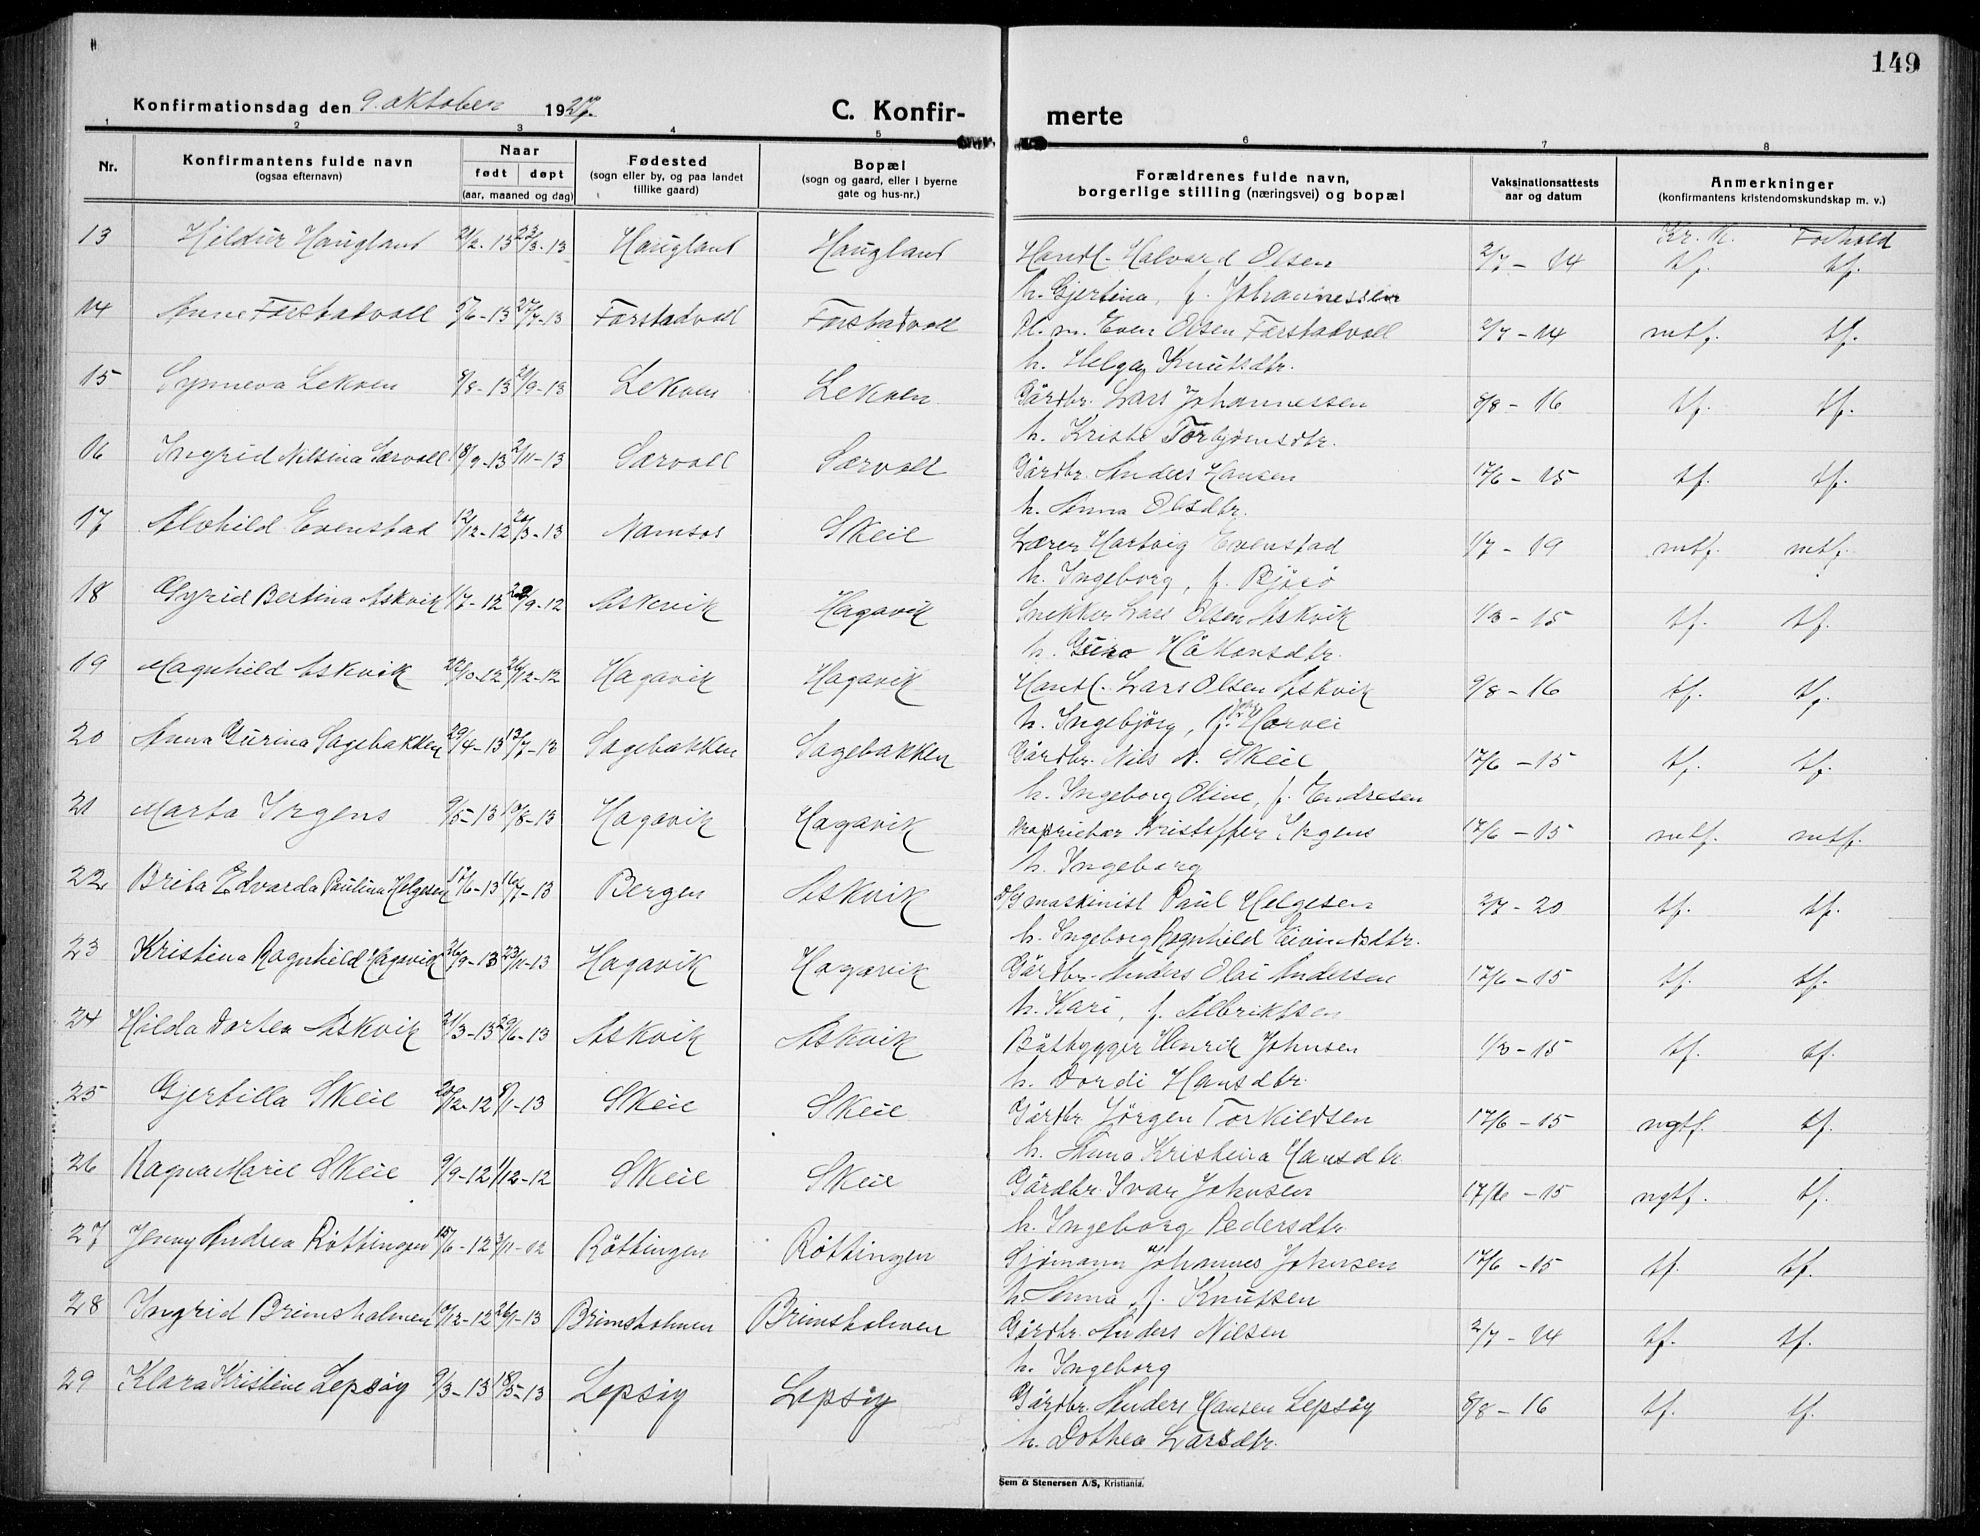 149
Konfirmationsdag den 9. oktober 1927.
C. Konfir- merte
1 2 3 4 5 6 7 8
Nr. Konfirmantens fulde navn (ogsaa efternavn) Naar født døpt (aar, maaned og dag) Fødested (sogn eller by, og paa landet tillike gaard) Bopæl (sogn og gaard, eller i byerne gate og hus-nr.) Forældrenes fulde navn, borgerlige stilling (næringsvei) og bopæl Vaksinationsattests aar og datum Anmerkninger (konfirmantens kristendomskundskap m. v.)
Kr. K. Forhold
13 Hildur Haugland 21/2-13 23/3-13 Haugland Haugland Handl. Halvard Olsen 2/7-14 tf. tf.
h. Gjertina, f. Johannessen
14 Anne Førstadvoll 5/6-13 27/7-13 Førstadvoll Førstadvoll H. m. Even Olsen Førstadvoll 2/7-14 mtf. tf.
h. Helga Knutsdtr.
15 Synneva Lekven 8/8-13 21/9-13 Lekven Lekven Gårdbr. Lars Johannessen 8/8-16 tf. tf.
h. Kristi Torbjørnsdtr.
16 Ingrid Nilsina Særvoll 18/9-13 2/11-13 Særvoll Særvoll Gårdbr. Anders Hansen 17/6-15 tf. tf.
h. Anna Olsdtr.
17 Alvhild Evenstad 12/12-12 20/3-13 Namsos Skeie Lærer Hartvig Evenstad 1/7-19 mtf. mtf.
h. Ingeborg, f.
18 Gyrid Bertina Askvik 1/7-12 22/9-12 Askvik Hagavik Snekker Lars Olsen Askvik 1/3-15 tf. tf.
h. Guro Håkonsdtr.
19 Magnhild Askvik 22/10-12 26/12-12 Hagavik Hagavik Handl. Lars Olsen Askvik 9/8-16 tf. tf.
h. Ingebjørg, f. Harvei
20 Anna Gurina Sagebakken 29/4-13 13/7-13 Sagebakken Sagebakken Gårdbr. Nils N. Skeie 17/6-15 tf. tf.
h. Ingeborg Oline, f. Endresen
21 Marta Irgens 9/5-13 10/8-13 Hagavik Hagavik Proprietær Kristoffer Irgens 17/6-15 mtf. mtf.
h. Ingeborg
22 Brita Edvarda Paulina Helgesen 17/6-13 16/7-13 Bergen Askvik D/S maskinist Paul Helgesen 2/7-20 tf. tf.
h. Ingeborg Ragnhild Eivindsdtr.
23 Kristina Ragnhild Hagavik 26/9-13 23/11-13 Hagavik Hagavik Gårdbr. Anders Olai Andersen 17/6-15 tf. tf.
h. Kari, f. Albriktsen
24 Hilda Dortea Askvik 21/3-13 29/6-13 Askvik Askvik Båtbygger Henrik Johnsen 1/3-15 tf. tf.
h. Dordi Hansdtr.
25 Gjertilla Skeie 20/12-12 9/1-13 Skeie Skeie Gårdbr. Jörgen Torkildsen 17/6-15 ngtf. tf.
h. Anna Kristina Hansdtr.
26 Ragna Marie Skeie 9/9-12 1/12-12 Skeie Skeie Gårdbr. Ivar Johnsen 17/6-15 ngtf. tf.
h. Ingeborg Pedersdtr.
27 Jenny Andrea Röttingen 15/6-12 3/11-12 Röttingen Röttingen Sjömann Johannes Johnsen 17/6-15 tf. tf.
h. Anna, f. Knutsen
28 Ingrid Brimsholmen 10/12-12 26/1-13 Brimsholmen Brimsholmen Gårdbr. Anders Nilsen 2/7-14 tf. tf.
h. Ingeborg
29 Klara Kristine Lepsöy 9/3-13 18/5-13 Lepsöy Lepsöy Gårdbr. Anders Hansen Lepsöy 8/8-16 tf. tf.
h. Dothea Larsdtr.
Sem & Stenersen A/S, Kristiania.